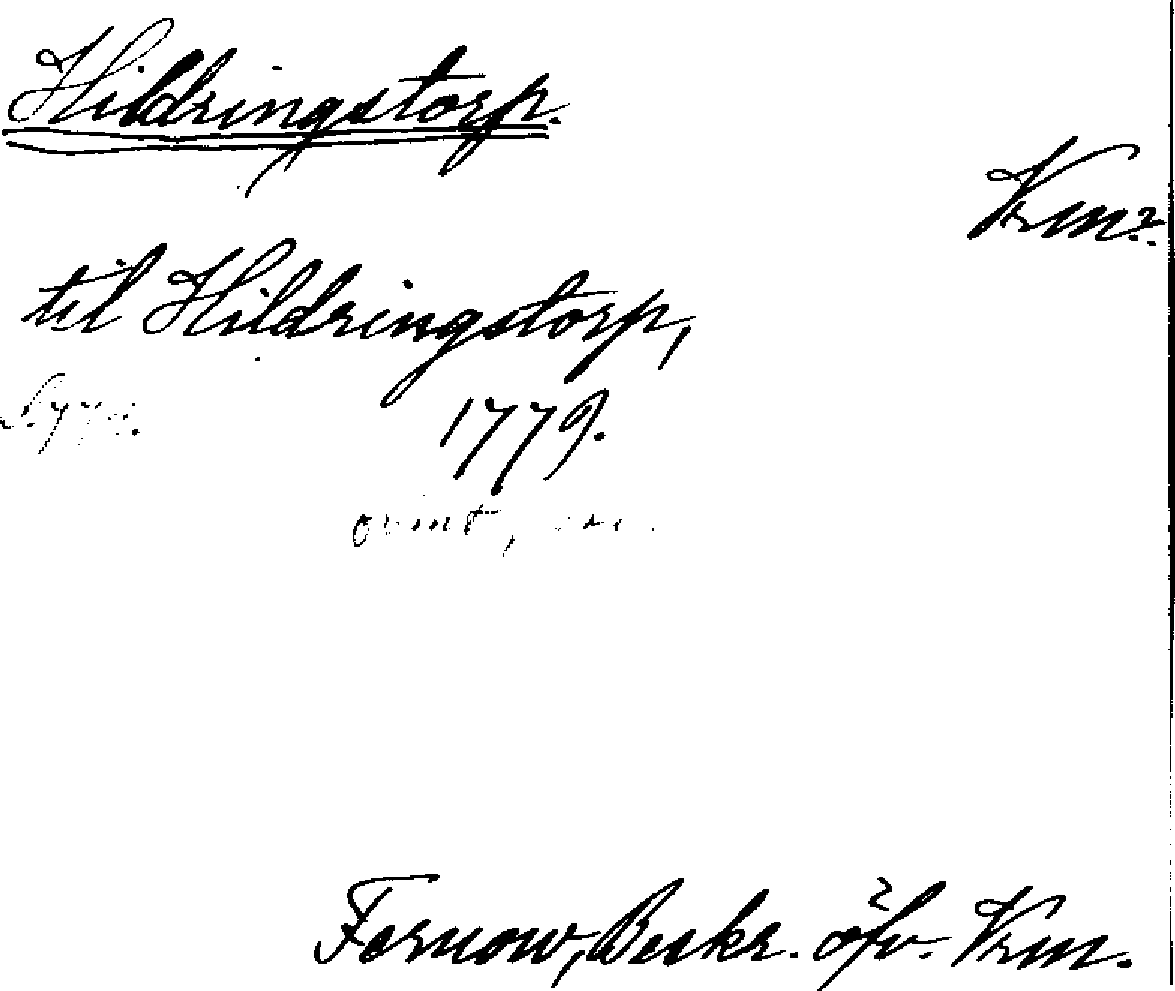 Hildringstorp.
Vrm?
til Hildringstorp,
1779.
Fernow, Beskr. öfv. Vrm.